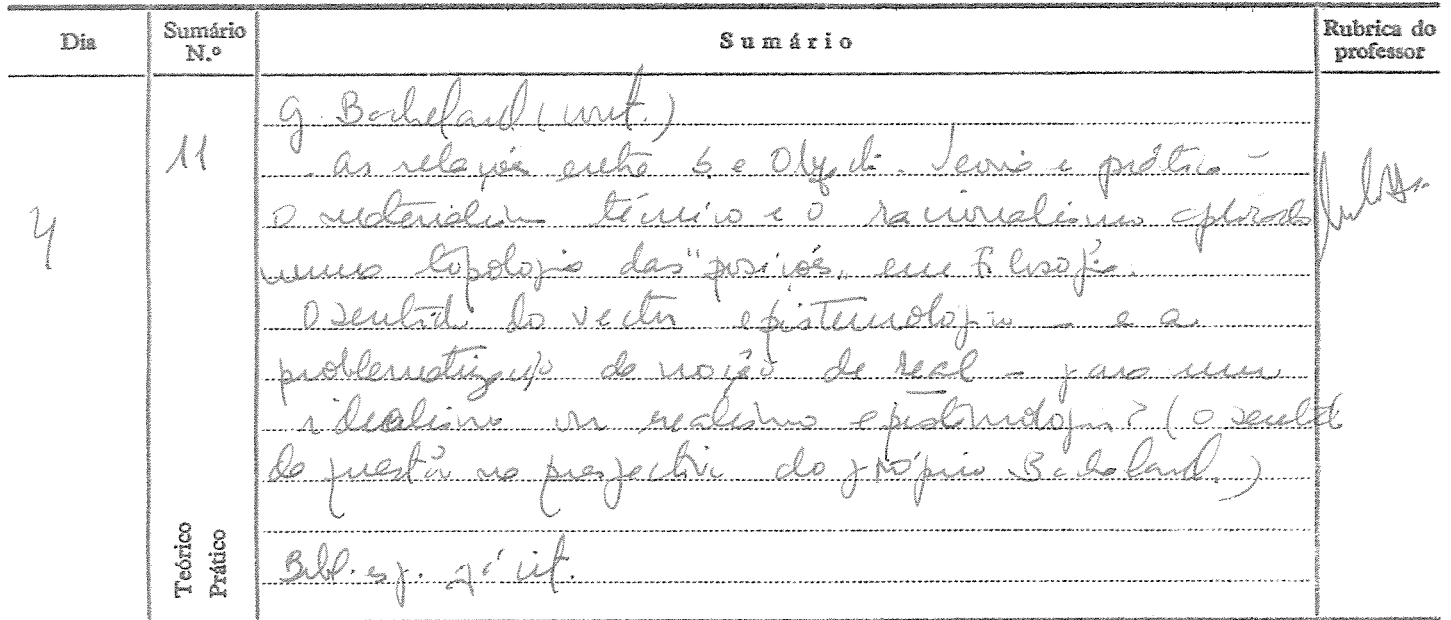 Dia
Sumário N.º
Sumário
Rubrica do professor
4
11
Teórico
Prático
G. Bachelard (cont.)
- As relações entre S. e Obj. de. Teoria e prática -
O materialismo técnico e o racionalismo aplicado
numa topologia das "posições" em Filosofia.
O sentido do vector epistemológico - e a
problematização da noção de real - para um
idealismo ou realismo epistemológico? (O sentido
da questão na perspectiva do próprio Bachelard.)
Bibl. já cit.